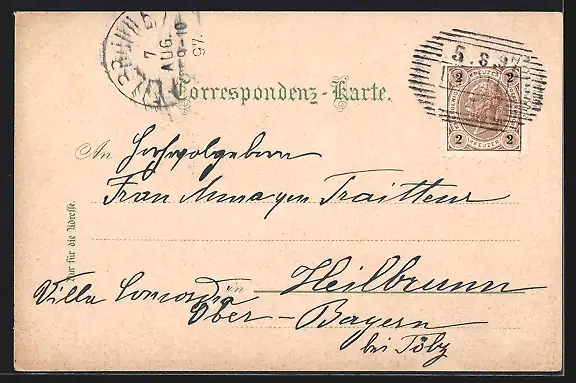 7
AUG.
9-10
97.
5.8.97
2 KREUZER 2
2 KREUZER 2
Correspondenz-Karte.
An Hochwolgeboren
Frau Traitteur
Nur für die Adresse.
in Heilbrunn
Villa Concordia
Ober-Bayern
bei Tölz